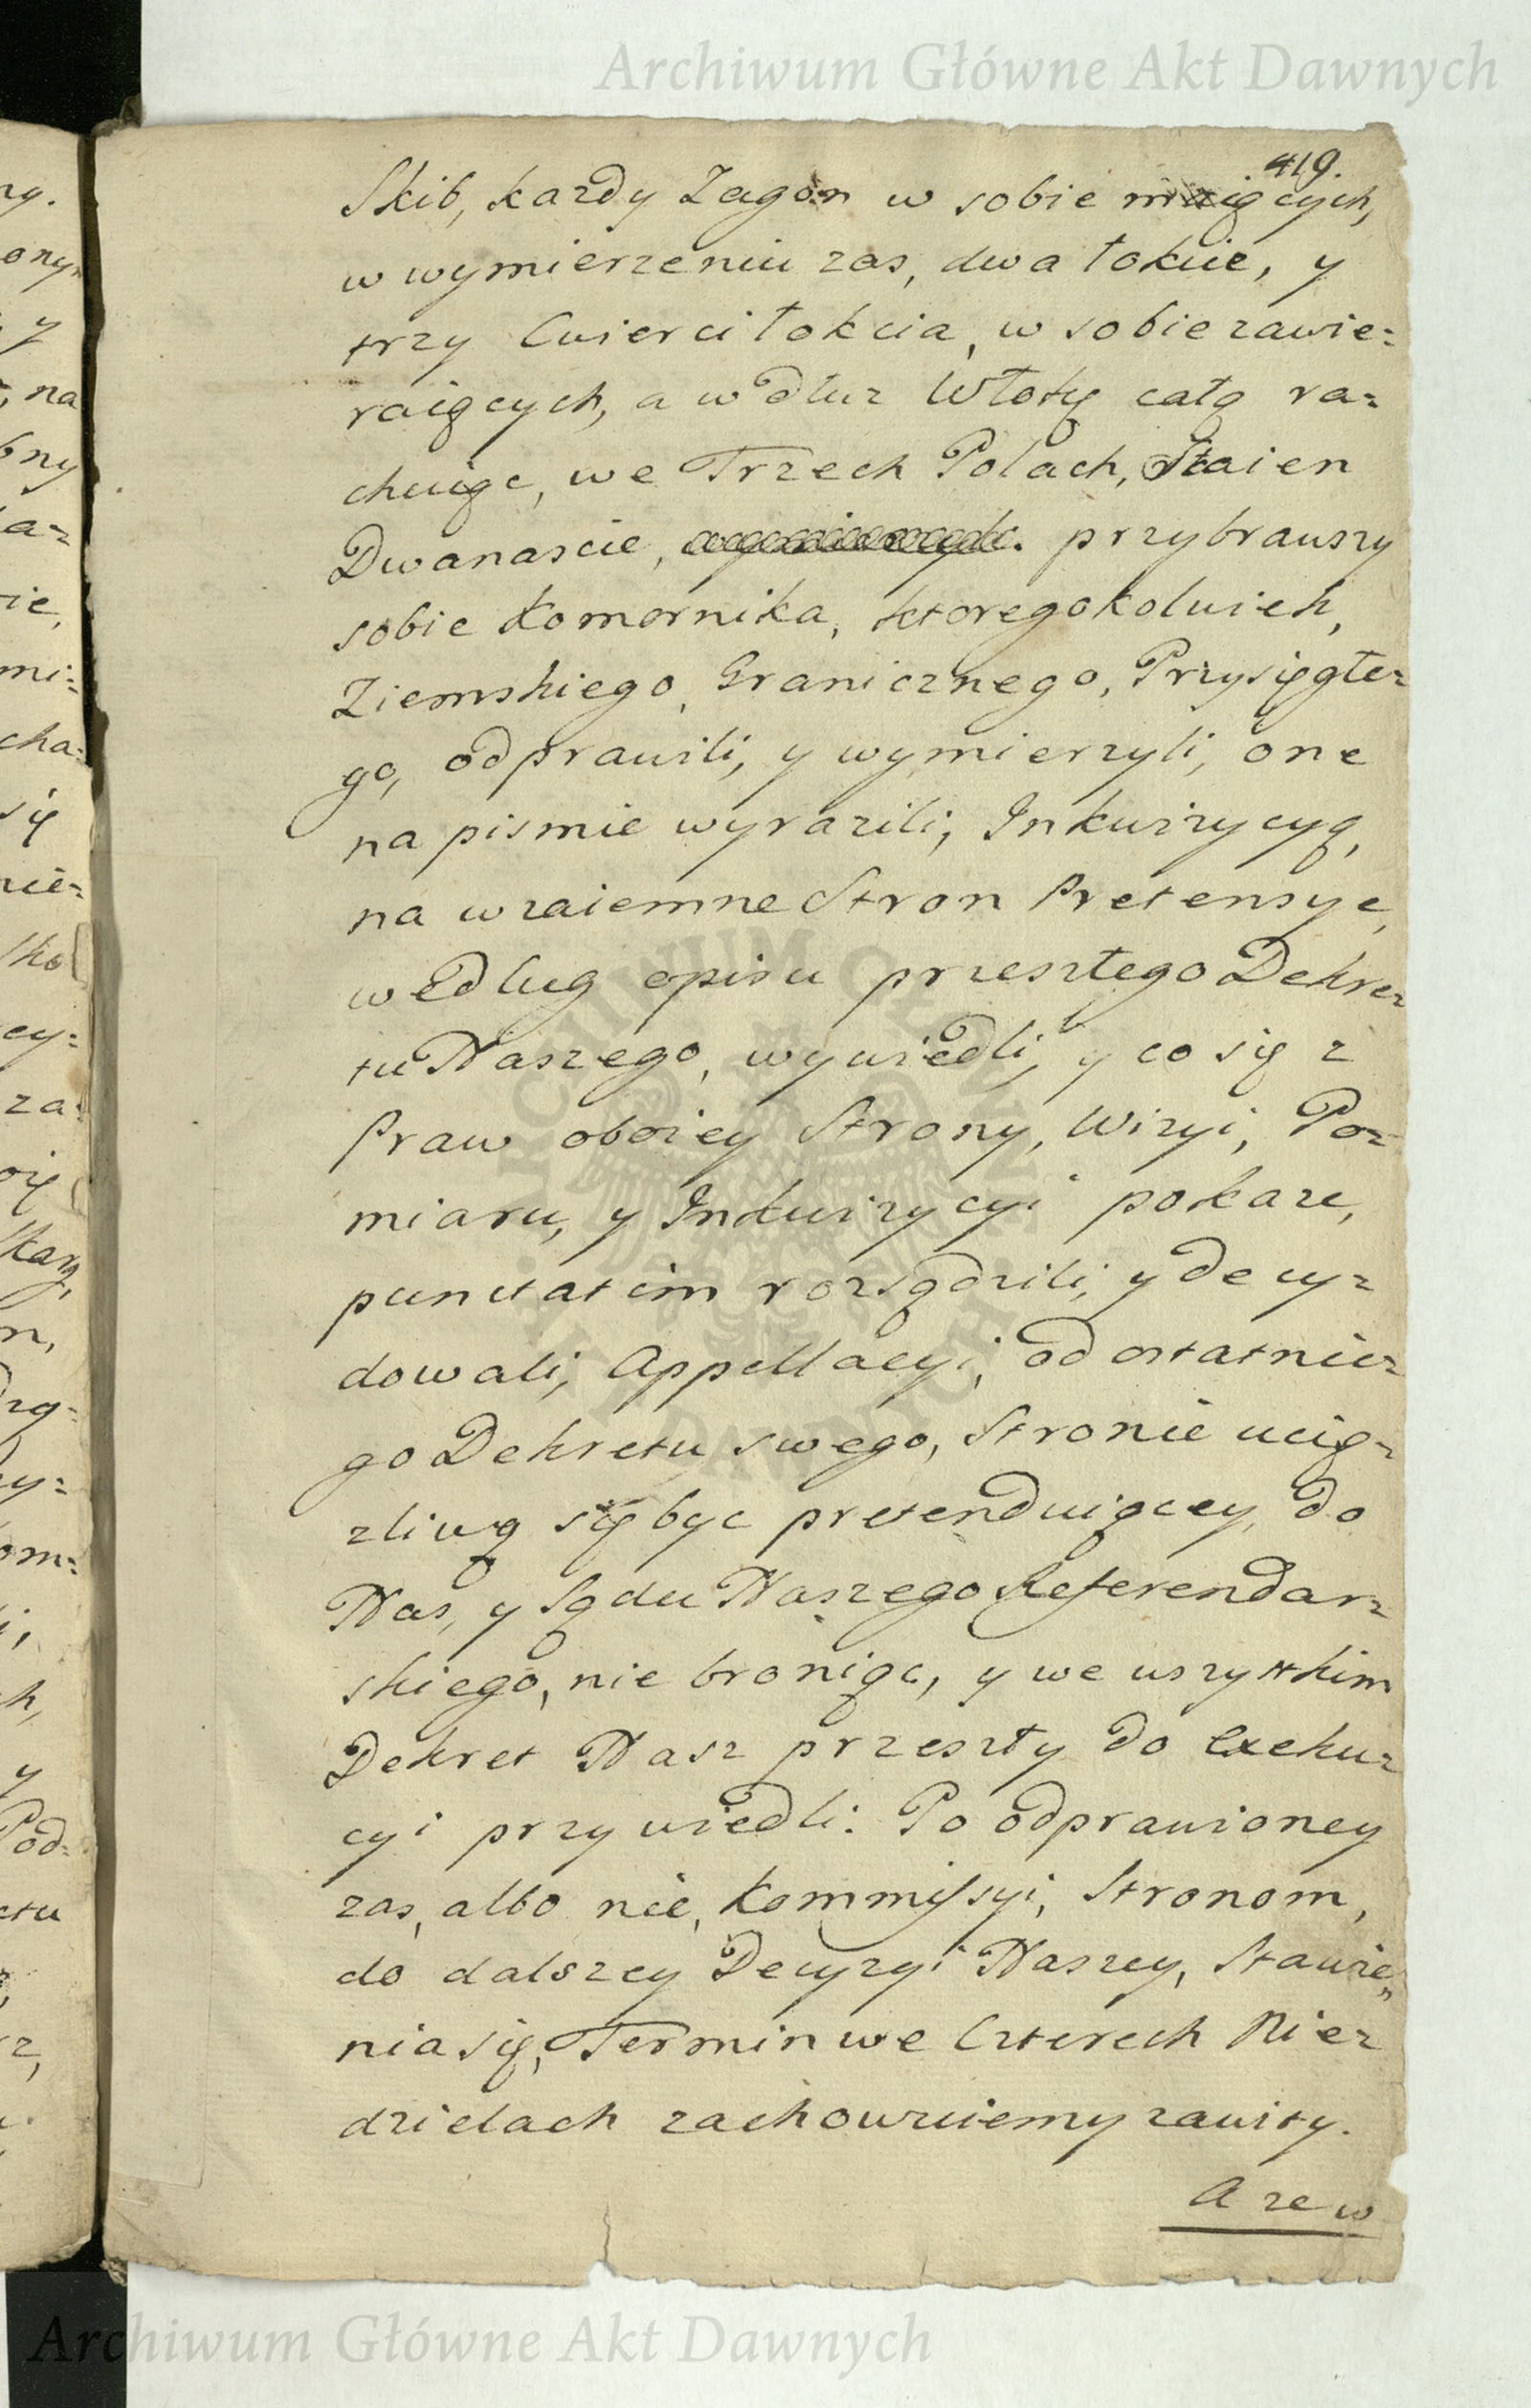 Archiwum Główne Akt Dawnych
419.
Skib, kazdy Zagon w sobie maiących,
w wymierzeniu zas, dwa łokcie, y
trzy Cwierci łokcia, w sobie zawie=
raiących, a wdłuz Włoky całą ra=
chuiąc, we Trzech Polach, Staien
Dwanascie, przybrawszy
sobie Komornika, ktoregokolwiek,
Ziemskiego, Granicznego, Przysięgłe=
go, odprawili, y wymierzyli, one
na pismie wyrazili, Inkwizycyą,
na wzaiemne Stron Pretensye,
według opisu przeszłego Dekre=
tu Naszego, wywiedli, y co się z
Praw oboiey Strony, Wizyi, Po=
miaru, y Inkwizycyi pokaze,
punctatim rozsądzili, y decy=
dowali, Appellacyi, od ostatnie=
go Dekretu swego, Stronie ucią=
zliwą się byc pretenduiącey, do
Nas, y Sądu Naszego Referendar=
skiego, nie broniąc, y we wszystkim
Dekret Nasz przeszły do Exeku=
cyi przywiedli. Po odprawioney
zas, albo nie, Kommissyi, Stronom,
do dalszey Decyzyi Naszey, Stawie„
nia się, Termin we Czterech Nie=
dzielach zachowuiemy zawity.
A ze w
Archiwum Główne Akt Dawnych